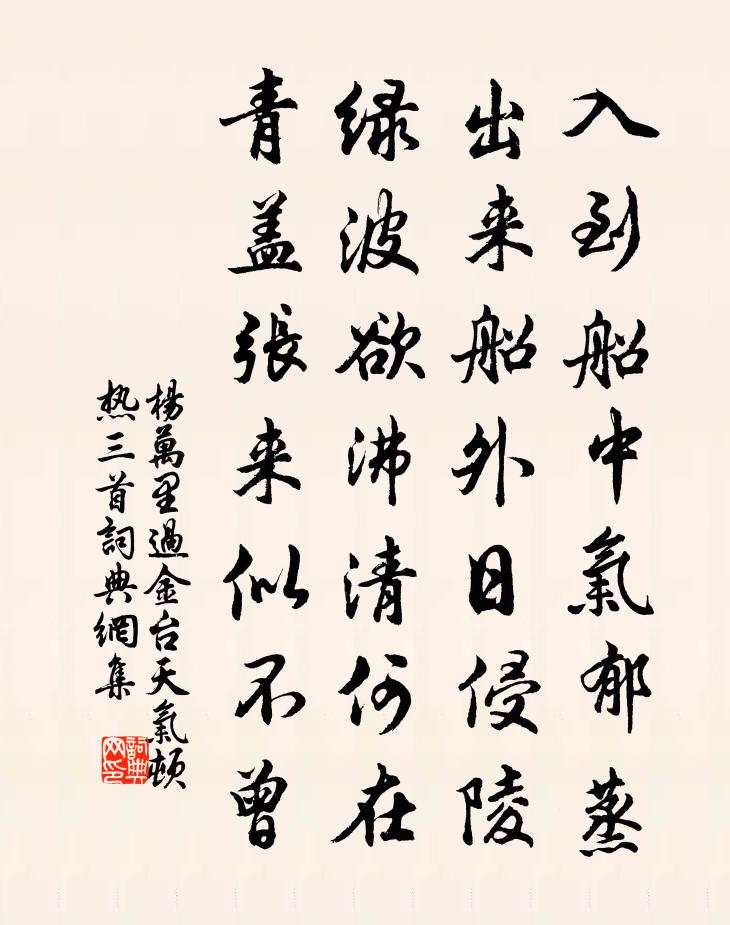 入到船中氣郁蒸
出来船外日侵陵
绿波欲沸清何在
青盖張来似不曾
楊萬里過金台天氣頓
热三首詞典網集
詞典
网印